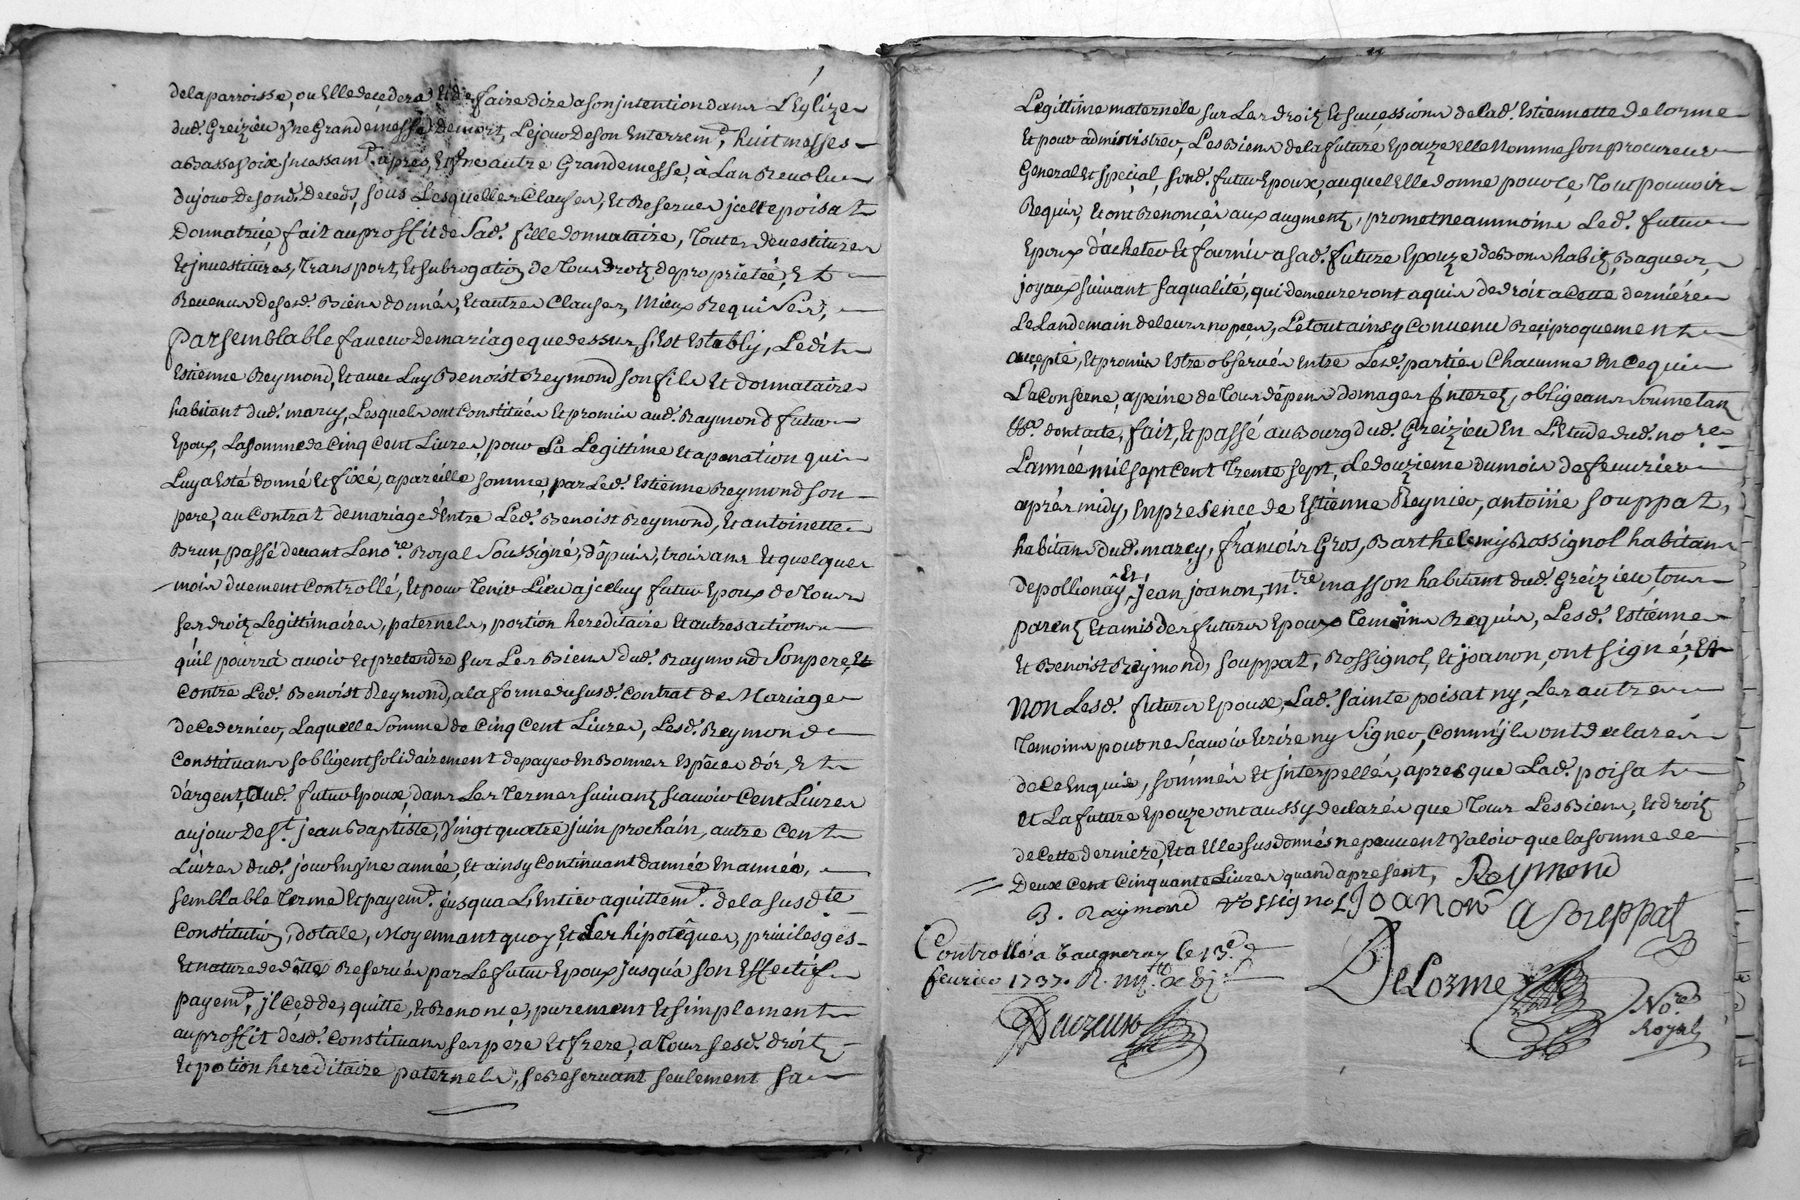 de la parroisse, ou Elle decedera Et de faire dire a son jntention dans L'Eglize
dud. Greizieu Vne Grande messe de mort, Le jour de son Enterrem.t, huit messes
a Basse voix jncessam.t apres, Et Vne autre Grande messe, à L'an Revolu
du jour de sond. Deceds, sous Lesquelles Clauses, Et Reserves jcelle poisat
Donnatrice, fait au proffit de Sad. fille donnataire, Toutes devestitures
Et jnvestitures, Transport, Et subrogation de Tous droitz de proprietéé, Et
Revenus desesd. Biens donnés, Et autres Clauses, Mieux Requises,
Par semblable faveur de mariage que dessus, s'Est Estably, Ledit
Estienne Reymond, Et avec Luy Benoist Reymond son fils Et donnataire
habitant dud. marcy, Lesquels ont Constitués Et promis aud. Raymond futur
Epoux, La somme de Cinq Cent Livres, pour sa Legittime Et apanation qui
Luy a Esté donné Et fixé, a pareille somme, par Led. Estienne Reymond son
pere, au Contrat de mariage d'Entre Led. Benoist Reymond, Et antoinette
Brun, passé devant Le no.re Royal Soussigné, d'èpuis, trois ans Et quelques
mois duement Controllé, Et pour Tenir Lieu a jceluy futur Epoux de Tous
ses droitz Legittimaires, paternels, portion hereditaire Et autres actions
qu'il pourra avoir Et pretendre sur Les Biens dud. Raymond Son pere, Et
Contre Led. Benoist Reymond, a la forme du susd. Contrat de Mariage
de Ce dernier, Laquelle Somme de Cinq Cent Livres, Lesd. Reymond
Constituans s'obligent solidairement de payer En Bonnes Espèces d'or, Et
d'argent, aud. futur Epoux, dans Les Termes suivantz sçavoir Cent Livres
au jour de S.t jean Baptiste, Vingt quatre juin prochain, autre Cent
Livres dud. jour En Vne année, Et ainsy Continuant d'année En année,
semblable Terme Et payem.t jusqua L'Entier aquittem.t de la susd.te
Constitution, dotale, Moyennant quoy Et des hipotêques, privileges
Et nature de dette Reservés par Le futur Epoux jusqu'a son Effectif
payem.t, jl Cedde, quitte, Et Renonce, purement Et simplement
au proffit desd. Constituans ses pere Et frere, a Tous sesd. droitz
Et potion hereditaire paternels, se Reservant seulement sa
Legittime maternele sur Les droitz Et successions de Lad. Estiennette Delorme
Et pour administrer, Les Biens de la future Epouze Elle Nomme son procureur
General Et special, sond. futur Epoux, auquel Elle donne pour ce, Tout pouvoir
Requis, Et ont Renoncés aux augment, promet neammoins Led. futur
Epoux d'acheter Et fournir a sad. future Epouze de Bons habitz, Bagues,
joyaux suivant sa qualité, qui demeureront aquis de droit a Cette derniére
Le Landemain de leurs nopces, Le tout ainsy Convenu Reciproquement
accepté, Et promis Estre observés Entre Lesd. parties Chacunne En Ce qui
La Conserne, a peine de Tous dépens domages jnteretz, obligeans Soumetans
&a. dont acte, fait, Et passé au Bourg dud. Greizieu En L'Etude dud. no.re
L'année mil sept Cent Trente sept, Le douzieme du mois de fevrier
après midy, En presence de Estienne Reynier, antoine Souppat,
habitans dud. marcy, françois Gros, Barthelemy Rossignol habitans
de pollionay, Et jean joanon, m.tre masson habitant dud. Greizieu, tous
parentz Et amis des futurs Epoux Temoins Requis, Lesd. Estienne
Et Benoist Reymond, Souppat, Rossignol, Et joanon, ont signé, Et
NON Lesd. futurs Epoux, Lad. Sainte poisat ny, Les autres
Temoins pour ne Scavoir Ecrire ny Signer, Comm'jls ont declarés
de Ce Enquis, sommés Et jnterpellés, apres que Lad. poisat
Et La future Epouze ont aussy declarés que Tous Les Biens, Et droitz
de Cette derniere, Et a Elle susdonnés ne peuvent Valoir que la somme de
Deux Cent Cinquante Livres quand a present, Reymond
B. Raymond Rossignol Joanon A Soeppat
Controllé a Vaugneray le 13.e
fevrier 1737. R.
DeLorme
No.re
Royal